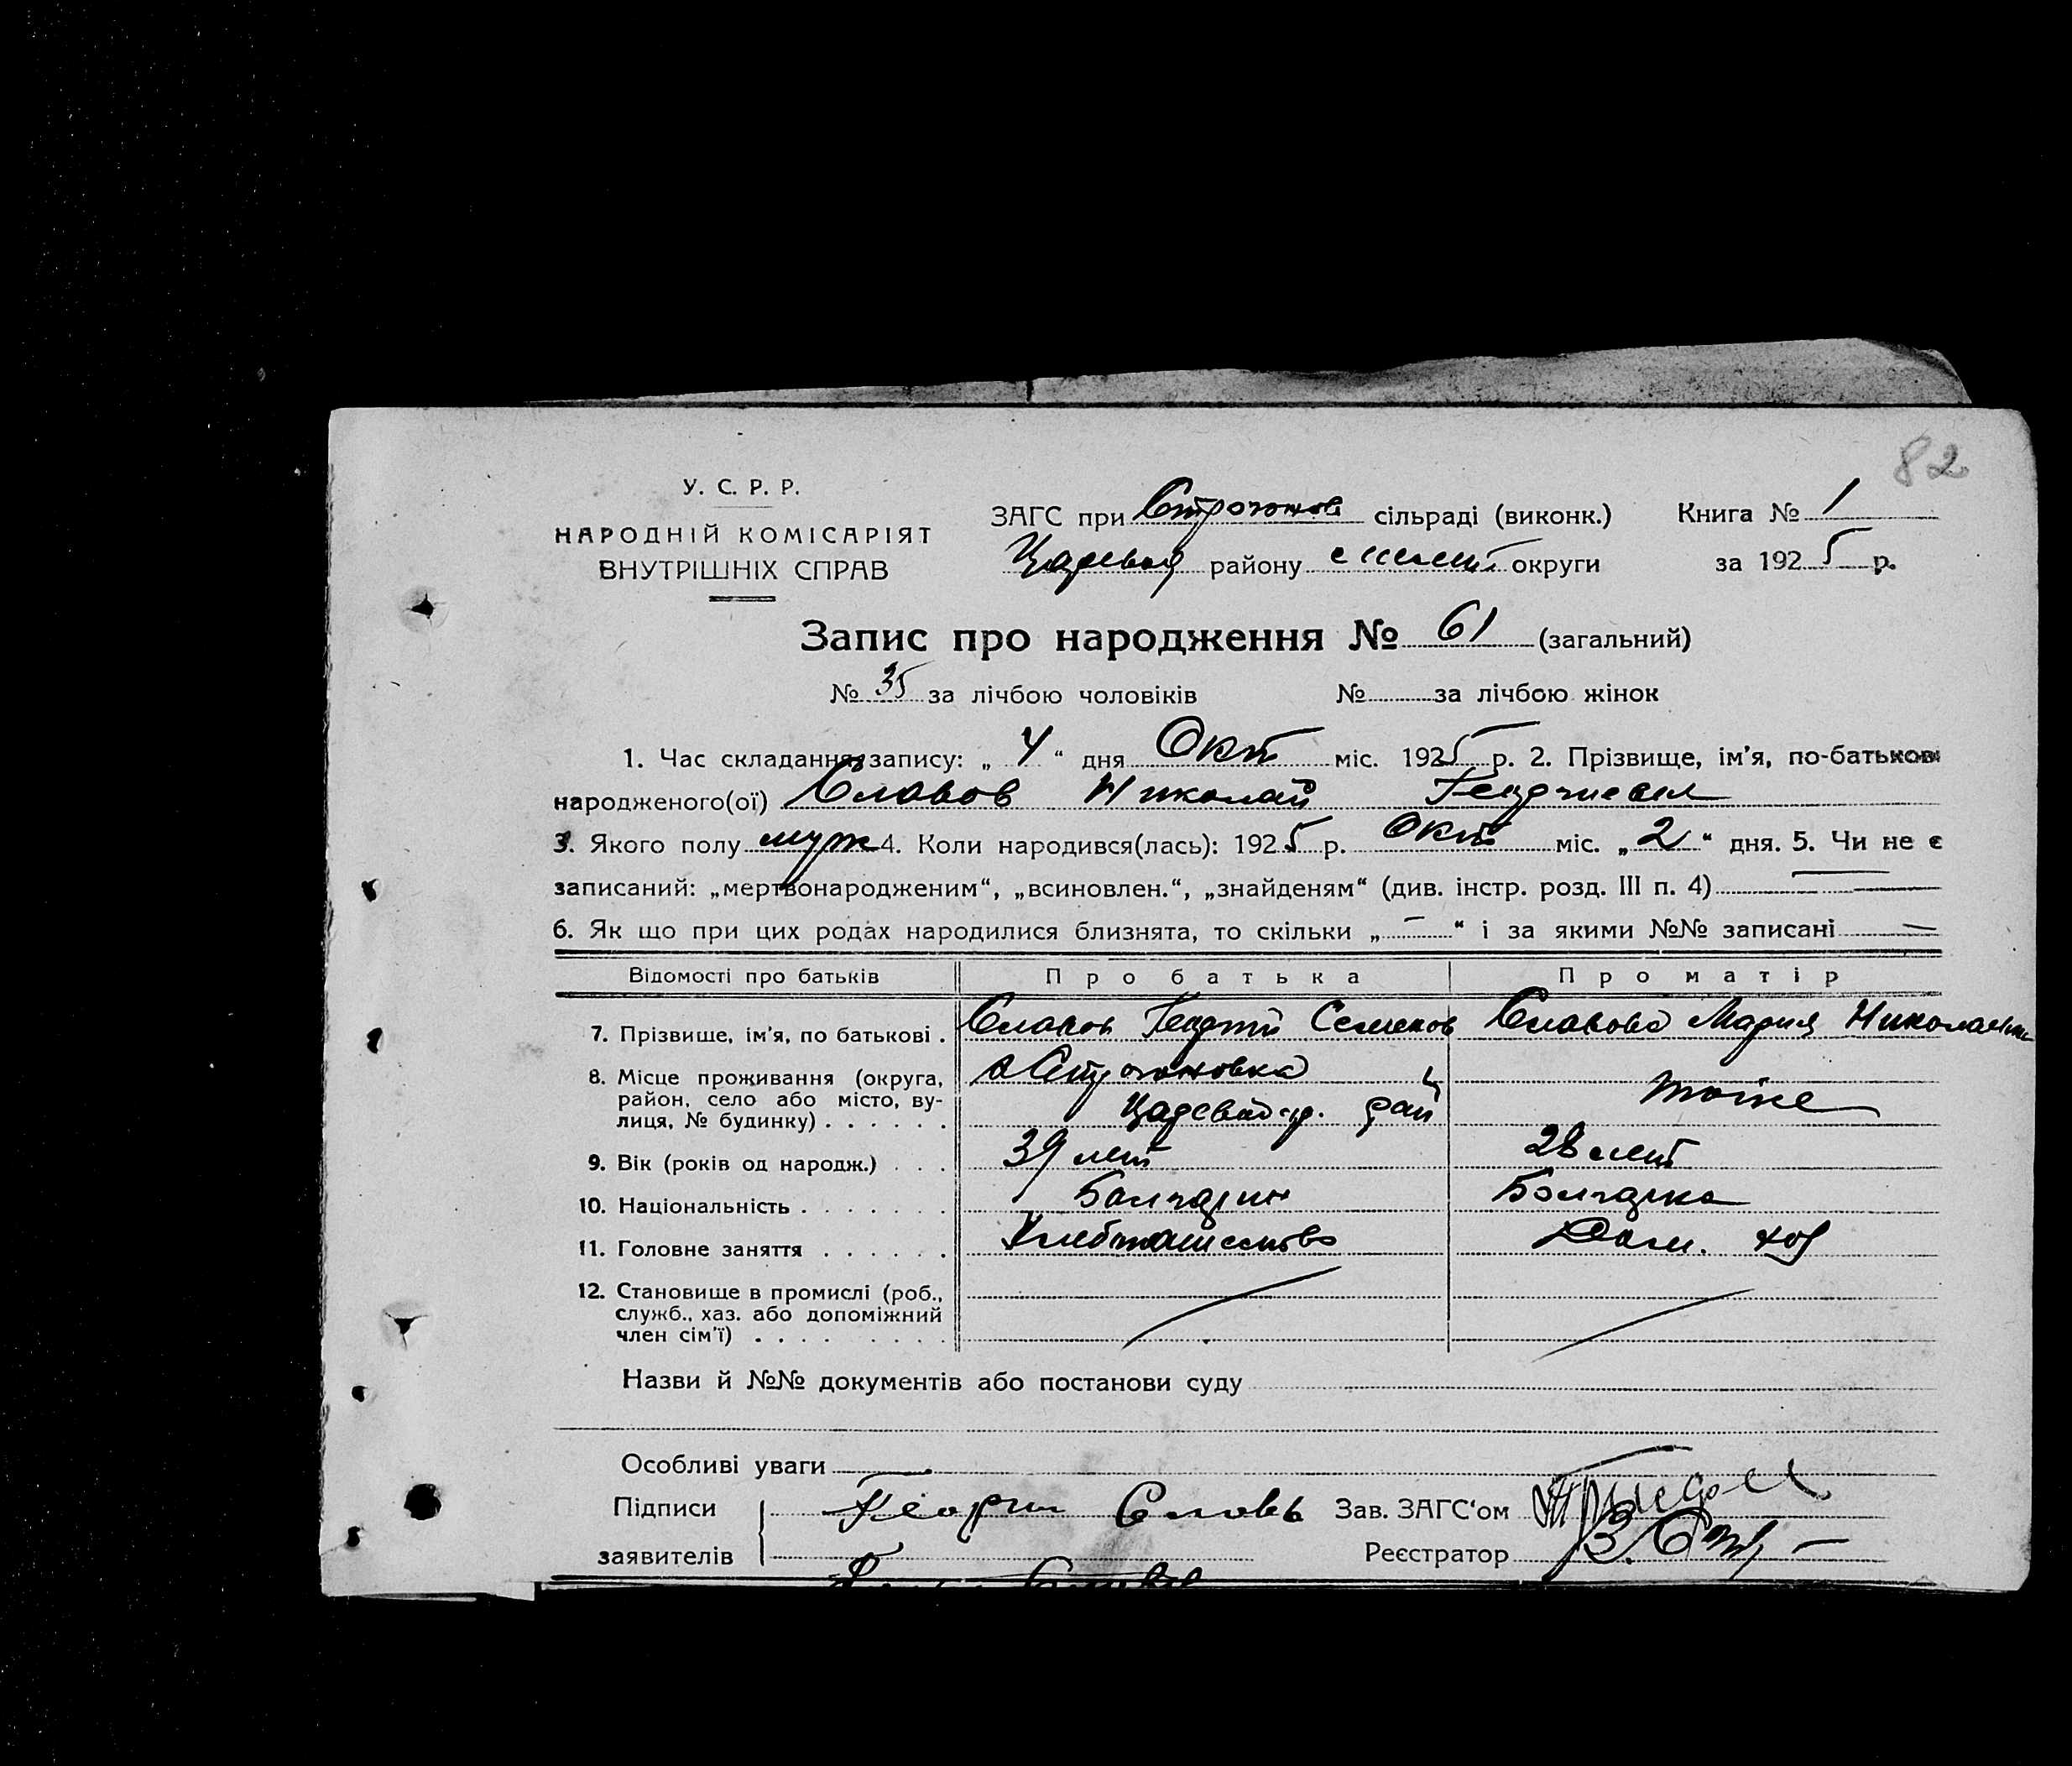 82
У. С. Р. Р.
НАРОДНІЙ КОМІСАРІЯТ
ВНУТРІШНІХ СПРАВ
ЗАГС при Строганов сільраді (виконк.) Книга № 1
району округи за 1925 р.
Запис про народження № 61 (загальний)
№ 35 за лічбою чоловіків № за лічбою жінок
1. Час складання запису: „ 4 “ дня Окт міс. 1925 р. 2. Прізвище, ім'я, по-батькові
народженого(ої) Славов Николай
3. Якого полу муж 4. Коли народився(лась): 1925 р. Окт міс. „ 2 “ дня. 5. Чи не є
записаний: „мертвонародженим“, „всиновлен.“, „знайденям“ (див. інстр. розд. III п. 4) —
6. Як що при цих родах народилися близнята, то скільки „ — “ і за якими №№ записані —
Відомості про батьків Про батька Про матір
7. Прізвише, ім'я, по батькові . Славов Георгий Семенов Славова Мария
8. Місце проживання (округа, Строгоновка
район, село або місто, ву- рай тоже
лиця, № будинку) . . . . . .
9. Вік (років од народж.) . . . 39 лет 28 лет
10. Національність . . . . . . . Болгарин Болгарка
11. Головне заняття . . . . . . Хлебопашество Дом. хоз
12. Становище в промислі (роб.,
служб., хаз. або допоміжний
член сім'ї) . . . . . . . .
Назви й №№ документів або постанови суду
Особливі уваги
Підписи Зав. ЗАГС'ом
заявителів Реєстратор